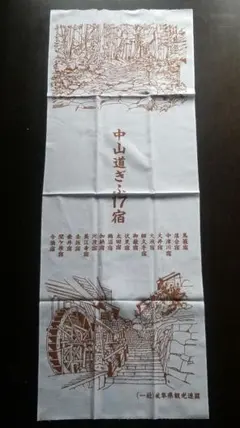 中山道ぎふ17宿
馬籠宿
落合宿
中津川宿
大井宿
大湫宿
細久手宿
御嶽宿
伏見宿
太田宿
鵜沼宿
加納宿
河渡宿
美江寺宿
赤坂宿
垂井宿
関ケ原宿
今須宿
(一社)岐阜県観光連盟